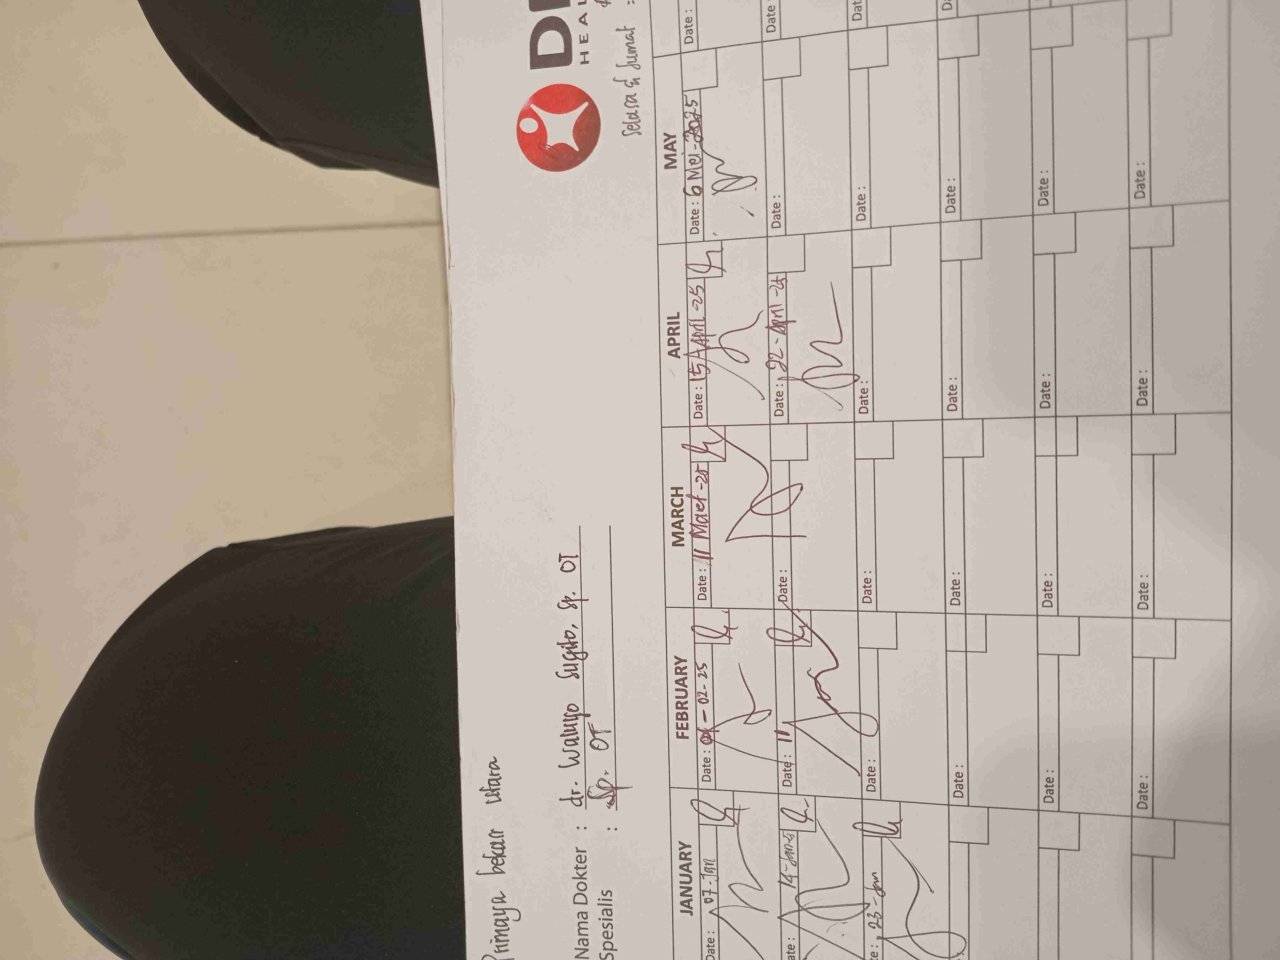 Primaya bekasi Utara
HEAL
Nama Dokter : dr. Waluyo Sugito, Sp. OT
Spesialis : Sp. OT
Selasa & Jumat :
JANUARY FEBRUARY MARCH APRIL MAY
Date : 07-Jan Date : -02-25 Date : 11 Maet-25 Date : 15 April-25 Date : 6 Mei-2025 Date :
Date : 14-Jan Date : 11 Date : Date : 22-April-25 Date : Date :
te : 23-Jan Date : Date : Date : Date : Dat
Date : Date : Date : Date : D
Date : Date : Date : Date :
Date : Date : Date : Date :